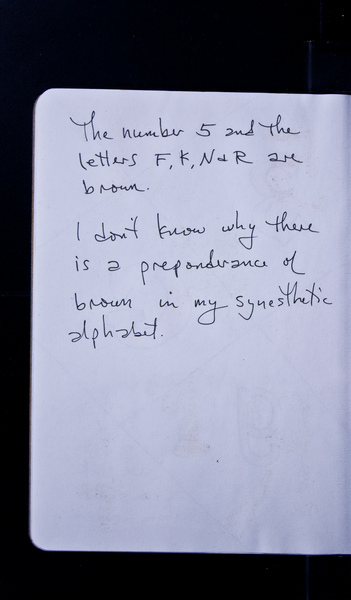 The number 5 and the
letters F, K, N & R are
brown.
I don't know why there
is a preponderance of
brown in my synesthetic
alphabet.